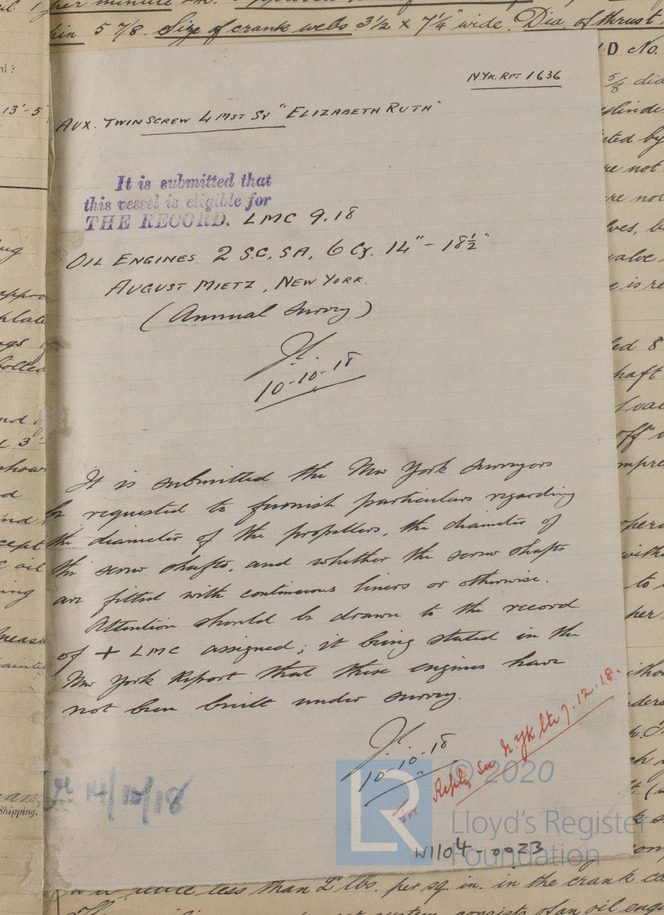 in 5 7/8. Size of crank webs 3½ x 7¼" wide. Dia. of thrust
NYK. RPT 1636
AUX. TWIN SCREW 4 MST SY "ELIZABETH RUTH"
It is submitted that
this vessel is eligible for
THE RECORD. LMC 9.18
OIL ENGINES 2 S.C. SA, 6 Cy. 14" - 18½"
AUGUST MIETZ, NEW YORK.
(Annual Survey)
10-10-18
It is submitted the New York Surveyors
be requested to furnish particulars regarding
the diameter of the propellers, the diameter of
the screw shafts, and whether the screw shafts
are fitted with continuous liners or otherwise.
Attention should be drawn to the record
of + LMC assigned; it being stated in the
New York Report that these engines have
not been built under survey.
10-10-18
For Reply see N.Yk ltr 7.12.18.
14/10/18
© 2020
LR
Lloyd's Register
Foundation
W1104-0023
less than 2 lbs. per sq. in. in the crank